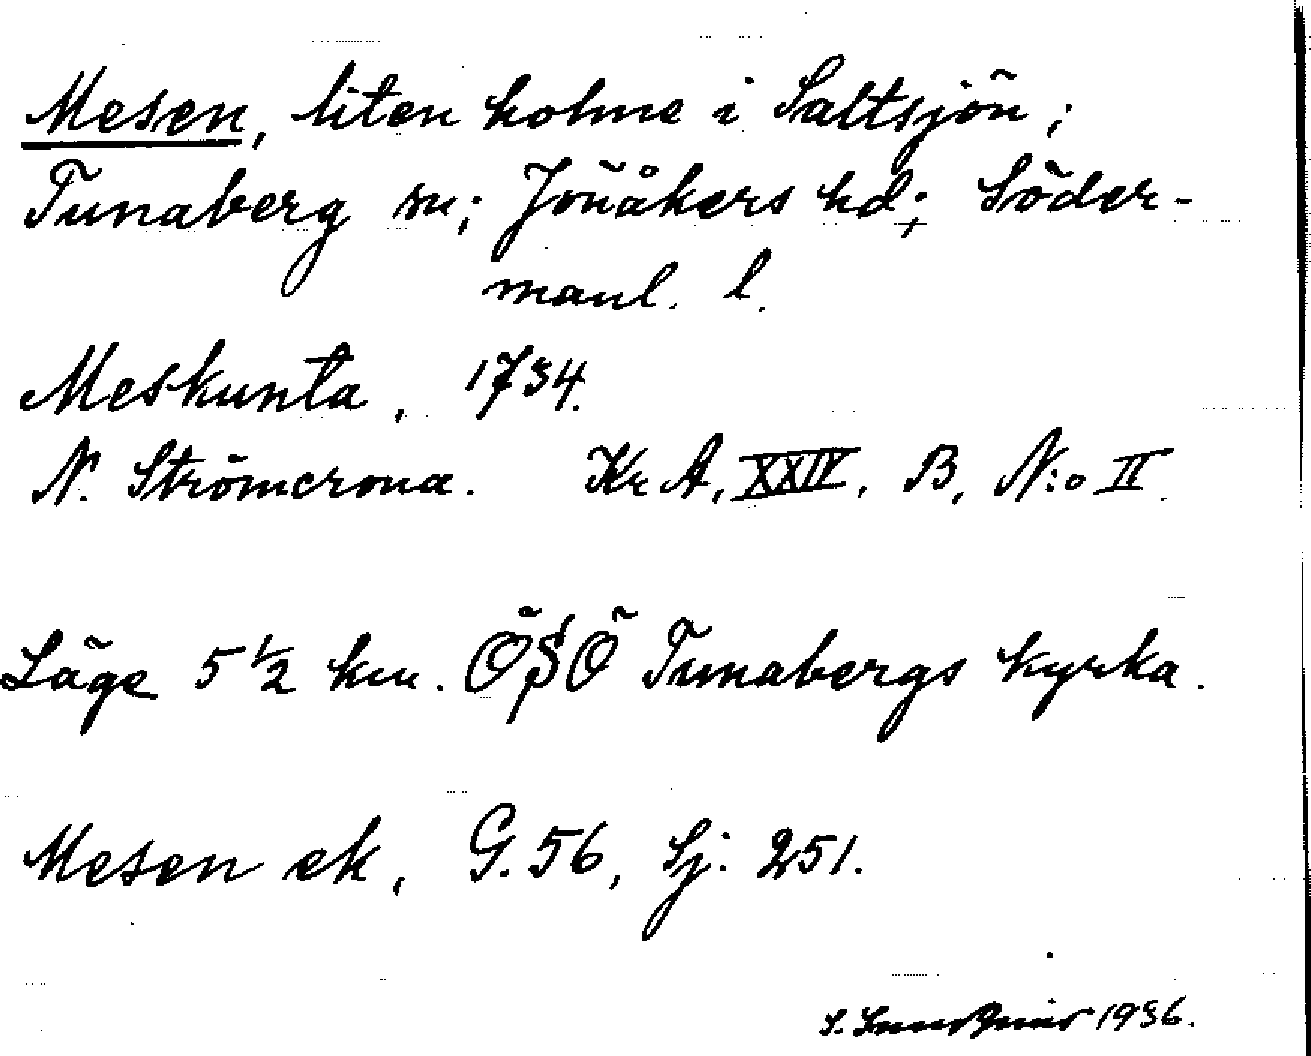 Mesen, liten holme i Saltsjön;
Tunaberg sn; Jönåkers hd; Söder-
manl. l.
Meskunta, 1734.
N. Strömcrona. Kr A, XXIV, B, N:o II.
Läge 5 1/2 km. ÖSÖ Tunabergs kyrka.
Mesen ek, G. 56, Sj. 251.
S. 1936.